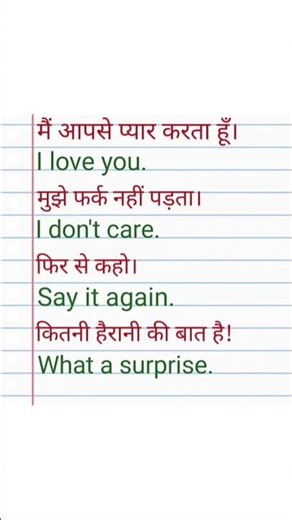 मैं आपसे प्यार करता हूँ।
I love you.
मुझे फर्क नहीं पड़ता।
I don't care.
फिर से कहो।
Say it again.
कितनी हैरानी की बात है!
What a surprise.